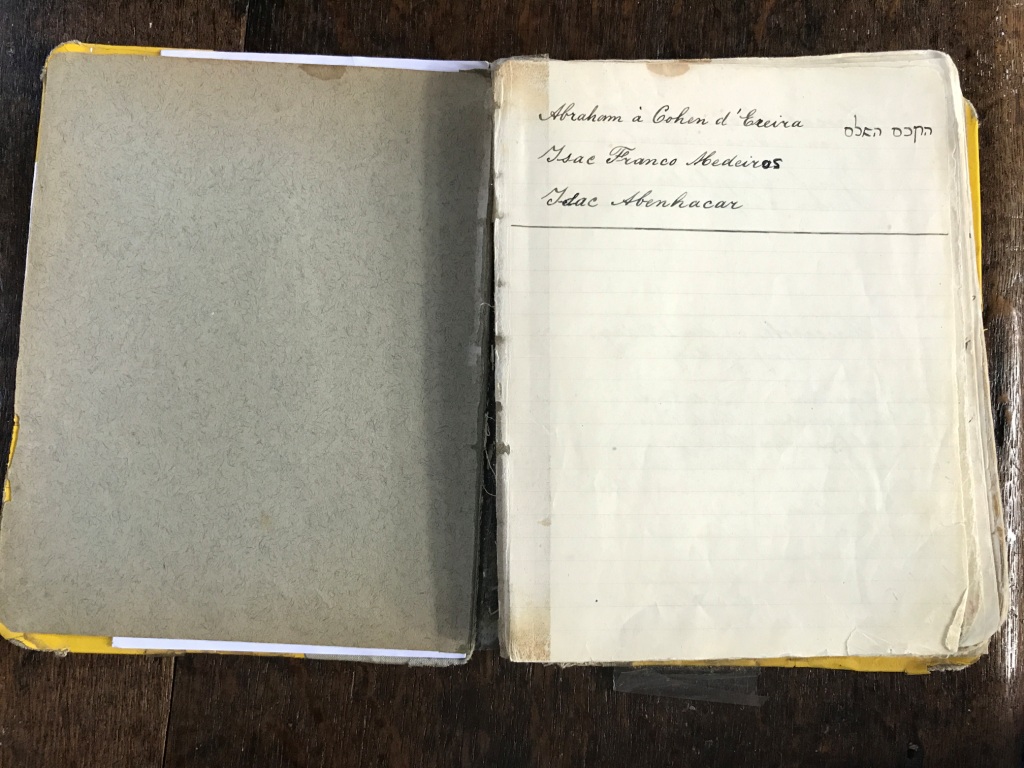 Abraham à Cohen d'Ereira הקכם האלם
Isac Franco Medeiros
Isac Abenhacar